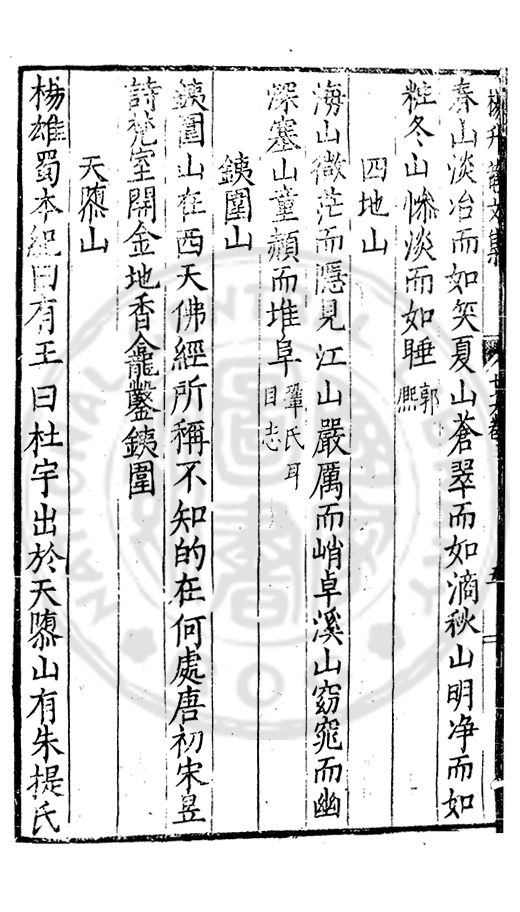 楊升菴文集
春山淡冶而如笑夏山蒼翠而如滴秋山明净而如
粧冬山慘淡而如睡郭熙
四地山
海山微茫而隱見江山嚴厲而峭卓溪山窈窕而幽
深塞山童赬而堆阜鞏氏耳目志
鐵圍山
鐵圍山在西天佛經所稱不知的在何處唐初宋昱
詩梵室開金地香龕鑿鐵圍
天隳山
楊雄蜀本紀曰有王曰杜宇出於天隳山有朱提氏
NATIONAL CENTRAL LIBRARY